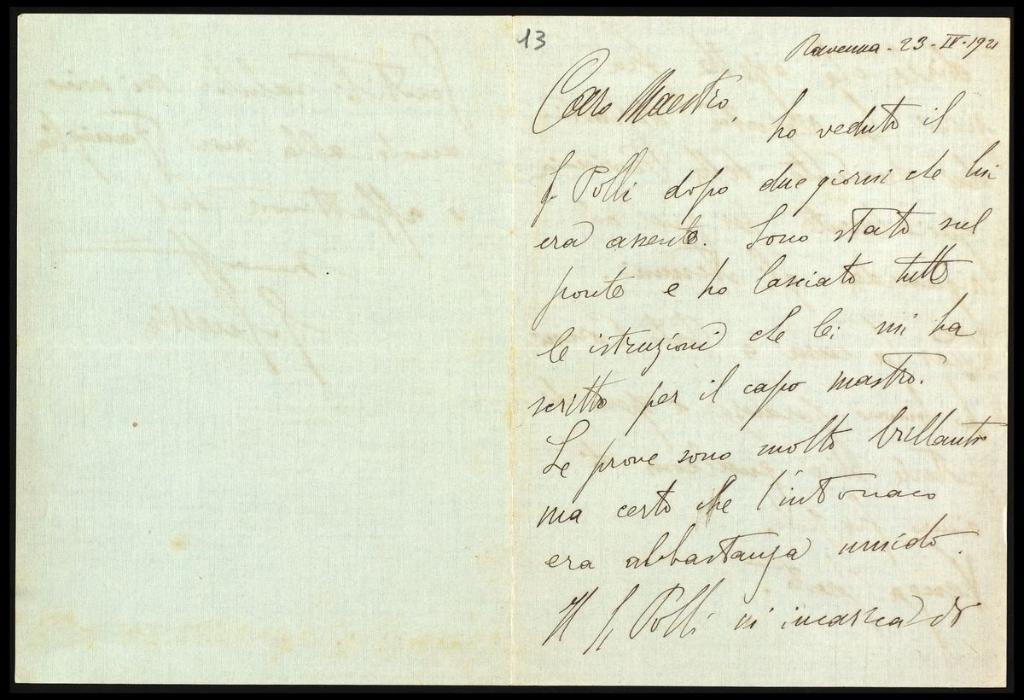 13
Ravenna - 23 - IV - 1921
Caro Maestro,
ho veduto il
S. Polli dopo due giorni che lui
era assente. Sono stato sul
ponte e ho lasciato tutte
le istruzioni che lei mi ha
scritto per il capo mastro.
Le prove sono molto brillanti
ma certo che l'intonaco
era abbastanza umido.
Il S. Polli mi incarica di